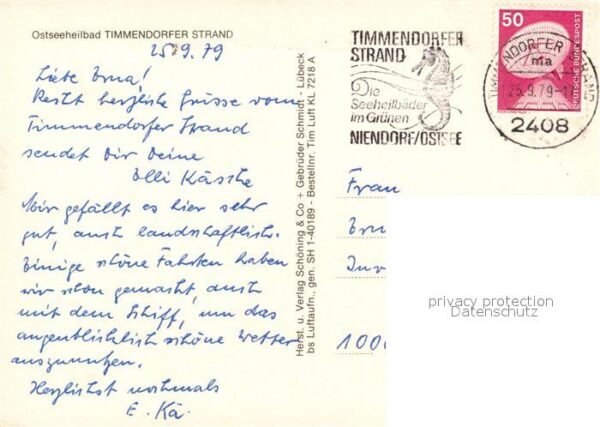 Ostseeheilbad TIMMENDORFER STRAND
25.9.79
Liebe Erna!
Recht herzliche Grüsse vom
Timmendorfer Strand
sendet Dir Deine
Elli Käschke
Mir gefällt es hier sehr
gut, auch landschaftlich.
Einige schöne Fahrten haben
wir schon gemacht, auch
mit dem Schiff, um das
augenblicklich schöne Wetter
auszunutzen.
Herzlichst nochmals
E. Kä.
Herst. u. Verlag Schöning & Co + Gebrüder Schmidt - Lübeck
bs Luftaufn., gen. SH 1-40189 - Bestellnr. Tim Luft KL 7218 A
TIMMENDORFER
STRAND
Die
Seeheilbäder
im Grünen
NIENDORF/OSTSEE
50
DEUTSCHE BUNDESPOST
TIMMENDORFER STRAND
ma
25.9.79-17
2408
Frau
1000
privacy protection
Datenschutz